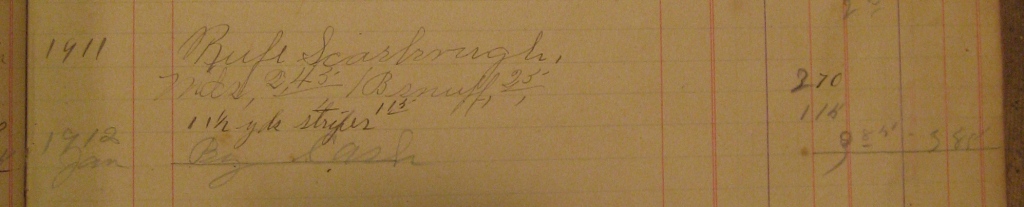 1911 Rufe Scarbrough,
Mds, 2,45 1 B snuff, 25, 2 70
11½ yds stripes 115 1 15
1912
Jan By Cash 3 85 3 85